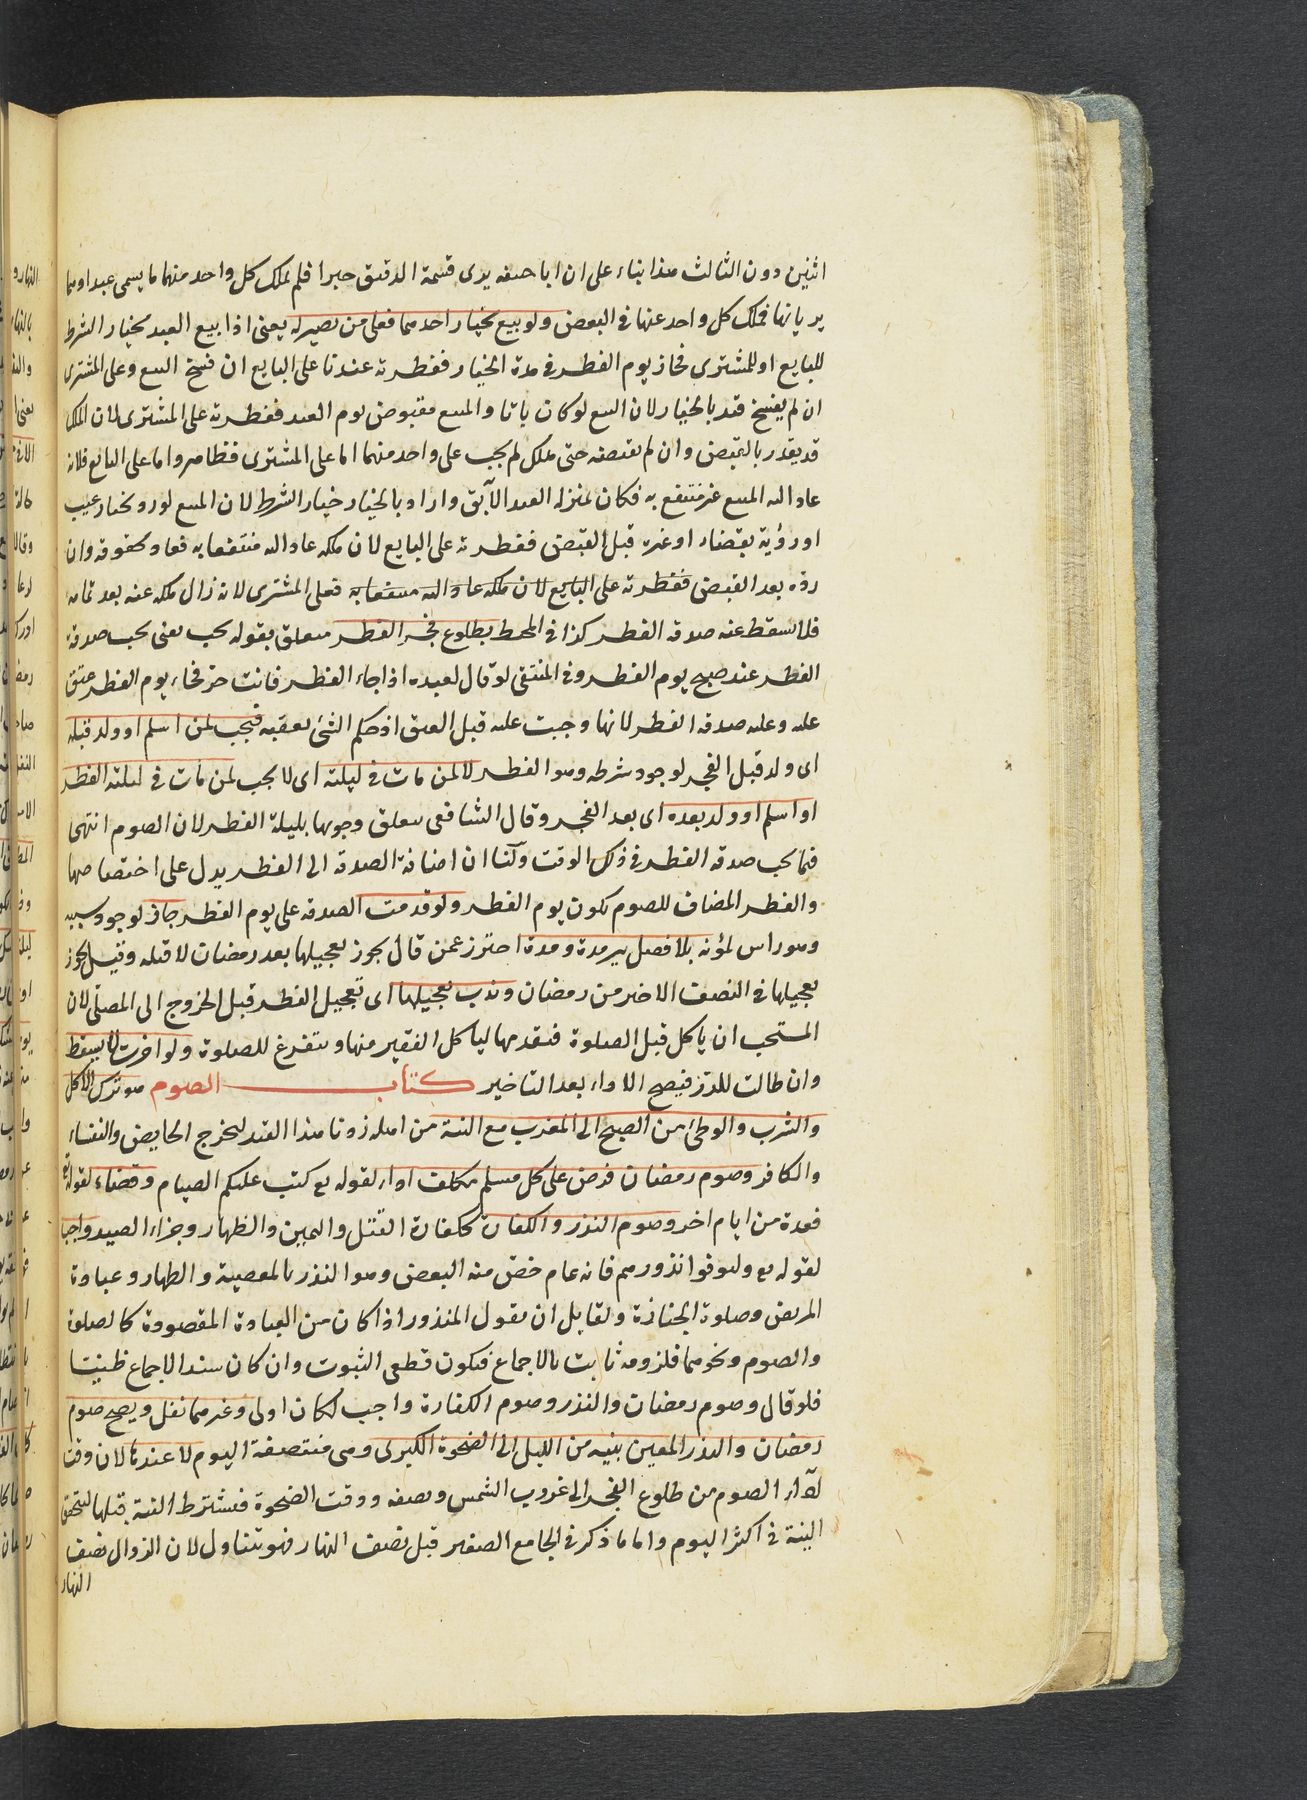 اثنين دون الثالث هذا بناء على ان ابا حنيفه يرى قسمة الدقيق جبرا فلم يملك كل واحد منهما ما يسمى عبدا وهما
يريانها فملك كل واحد عنها في البعض ولو بيع بخيار احدهما فعلى من يصير له يعنى اذا بيع العبد بخيار الشرط
للبايع او للمشترى فجاز يوم الفطر في مدة الخيار ففطرته عندنا على البايع ان فسخ البيع وعلى المشترى
ان لم يفسخ قيد بالخيار لان البيع لو كان باتا والمبيع مقبوض يوم العيد ففطرته على المشترى لان الملك
قد يقدر بالقبض وان لم يقبضه حتى هلك لم يجب على واحد منهما اما على المشترى فظاهر واما على البايع فلانه
عاد اليه المبيع غير منتفع به فكان بمنزلة العبد الآبق واراد بالخيار خيار الشرط لان المبيع لو رد بخيار عيب
او رؤية بقضاء او غيره قبل القبض ففطرته على البايع لان ملكه عاد اليه منتفعا به فعاد بحقوقه وان
رده بعد القبض ففطرته على البايع لان ملكه عاد اليه منتفعا به فعلى المشترى لانه زال ملكه عنه بعد تمامه
فلا يسقط عنه صدقة الفطر كذا في المحيط بطلوع فجر الفطر متعلق بقوله يجب يعنى يجب صدقة
الفطر عند صبح يوم الفطر وفي المنتقى لو قال لعبده اذا جاء الفطر فانت حر فجاء يوم الفطر عتق
عليه وعليه صدقة الفطر لانها وجبت عليه قبل العتق اذ حكم الشئ يعقبه فيجب لمن اسلم او ولد قبله
اى ولد قبل الفجر لوجود شرطه وهو الفطر لا لمن مات في ليلته اى لا يجب لمن مات في ليلة الفطر
او اسلم او ولد بعده اى بعد الفجر وقال الشافعى يتعلق وجوبها بليلة الفطر لان الصوم انتهى
فيما يجب صدقة الفطر في ذلك الوقت ولنا ان اضافة الصدقة الى الفطر يدل على اختصاصها
والفطر المضاف للصوم يكون يوم الفطر ولو قدمت الصدقة على يوم الفطر جاز لوجود سببه
وهو راس يمؤنه بلا فصل بين مدة ومدة احترز عمن قال يجوز تعجيلها بعد رمضان لا قبله وقيل يجوز
تعجيلها في النصف الاخير من رمضان وندب تعجيلها اى تعجيل الفطر قبل الخروج الى المصلى لان
المستحب ان ياكل قبل الصلوة فيقدمها لياكل الفقير منها ويتفرغ للصلوة ولو اخرت لا يسقط
وان طالت المدة فيصح الاداء بعد التاخير كتاب الصوم هو ترك الاكل
والشرب والوطئ من الصبح الى المغرب مع النية من اهله زدنا هذا القيد ليخرج الحايض والنفساء
والكافر وصوم رمضان فرض على كل مسلم مكلف اداء لقوله تع كتب عليكم الصيام وقضاء لقوله تع
فعدة من ايام اخر وصوم النذر والكفارة ككفارة القتل واليمين والظهار وجزاء الصيد واجب
لقوله تع وليوفوا نذورهم فانه عام خص منه البعض وهو النذر بالمعصية والطهار وعيادة
المريض وصلوة الجنازة ولقايل ان يقول المنذور اذا كان من العبادة المقصودة كالصلوة
والصوم ونحوهما فلزومه ثابت بالاجماع فيكون قطعى الثبوت وان كان سند الاجماع ظنيتا
فلو قال وصوم رمضان والنذر وصوم الكفارة واجب لكان اولى وغيرهما نفل ويصح صوم
رمضان والنذر المعين بنيه من الليل الى الضحوة الكبرى وهى منتصفة اليوم لا عندها لان وقت
اداء الصوم من طلوع الفجر الى غروب الشمس ونصفه ووقت الضحوة فيشترط النية قبلها ليتحقق
النية في اكثر اليوم واما ما ذكر في الجامع الصغير قبل نصف النهار فهو يتناول لان الزوال نصف
النهار